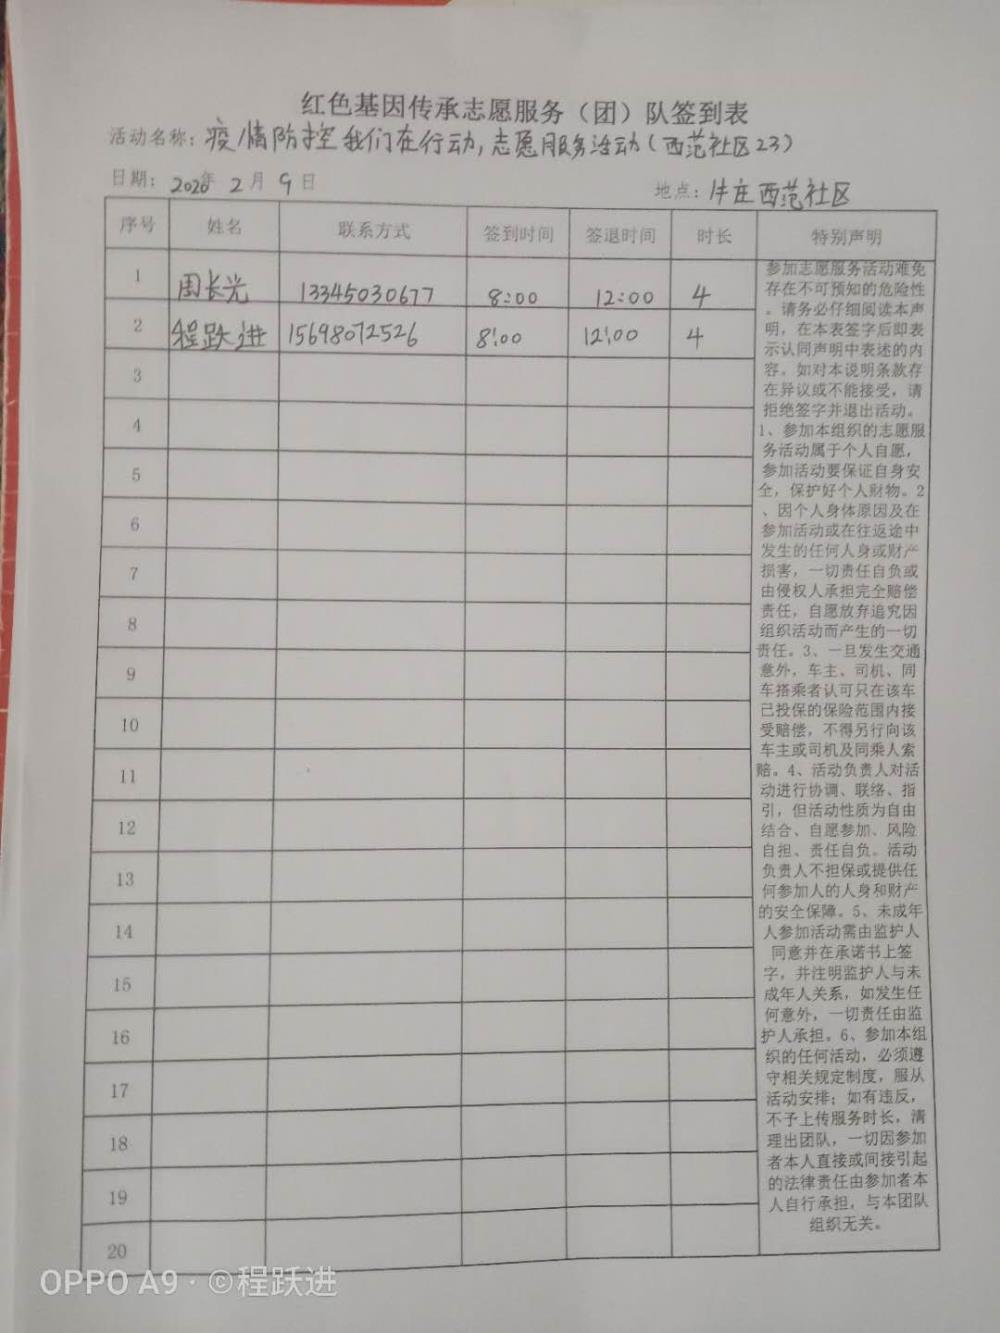 红色基因传承志愿服务（团）队签到表
活动名称：疫情防控我们在行动，志愿服务活动（西范社区23）
日期：2020年2月9日 地点：牛庄西范社区
序号 姓名 联系方式 签到时间 签退时间 时长 特别声明
1 周长光 13345030677 8:00 12:00 4
2 程跃进 15698072526 8:00 12:00 4
3
4
5
6
7
8
9
10
11
12
13
14
15
16
17
18
19
20
参加志愿服务活动难免
存在不可预知的危险性
。请务必仔细阅读本声
明，在本表签字后即表
示认同声明中表述的内
容。如对本说明条款存
在异议或不能接受，请
拒绝签字并退出活动。
1、参加本组织的志愿服
务活动属于个人自愿，
参加活动要保证自身安
全，保护好个人财物。2
、因个人身体原因及在
参加活动或在往返途中
发生的任何人身或财产
损害，一切责任自负或
由侵权人承担完全赔偿
责任，自愿放弃追究因
组织活动而产生的一切
责任。3、一旦发生交通
意外，车主、司机、同
车搭乘者认可只在该车
已投保的保险范围内接
受赔偿，不得另行向该
车主或司机及同乘人索
赔。4、活动负责人对活
动进行协调、联络、指
引，但活动性质为自由
结合、自愿参加、风险
自担、责任自负。活动
负责人不担保或提供任
何参加人的人身和财产
的安全保障。5、未成年
人参加活动需由监护人
同意并在承诺书上签
字，并注明监护人与未
成年人关系，如发生任
何意外，一切责任由监
护人承担。6、参加本组
织的任何活动，必须遵
守相关规定制度，服从
活动安排；如有违反，
不予上传服务时长，清
理出团队，一切因参加
者本人直接或间接引起
的法律责任由参加者本
人自行承担，与本团队
组织无关。
OPPO A9 · ©程跃进